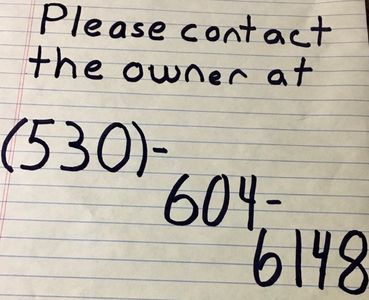 Please contact
the owner at
(530)-
604-
6148